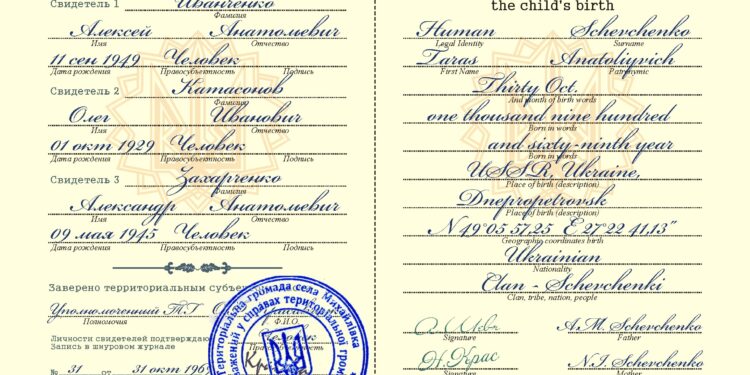 Свидетель 1 Иванченко
Фамилия
Алексей Анатольевич
Имя Отчество
11 сен 1949 Человек
Дата рождения Правосубъектность Подпись
Свидетель 2 Катасонов
Фамилия
Олег Иванович
Имя Отчество
01 окт 1929 Человек
Дата рождения Правосубъектность Подпись
Свидетель 3 Захарченко
Фамилия
Александр Анатольевич
Имя Отчество
09 мая 1945 Человек
Дата рождения Правосубъектность Подпись
Заверено территориальным
Уполномоченный Т.Г
Полномочия Ф.И.О.
Личности свидетелей подтверждаю
Запись в шнуровом журнале
№ 31 от 31 окт
Територіальна громада села Михайлівка
у справах територіальної
the child's birth
Human Schevchenko
Legal Identity Surname
Taras Anatoliyvich
First Name Patronymic
Thirty Oct.
And month of birth words
one thousand nine hundred
Born in words
and sixty-ninth year
Born in words
USSR, Ukraine,
Place of birth (description)
Dnepropetrovsk
Place of birth (description)
N 49°05 57,25 E 27°22 41,13"
Geographic coordinates birth
Ukrainian
Nationality
Clan - Schevchenki
Clan, tribe, nation, people
A.M. Schevchenko
Signature Father
N.I. Schevchenko
Signature Mother